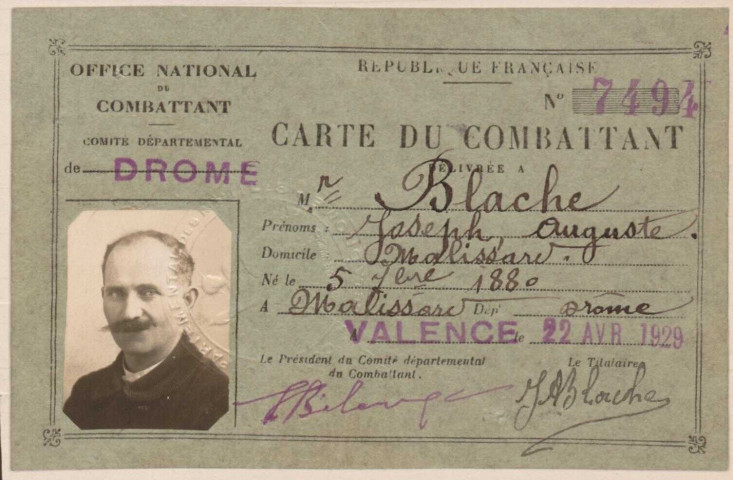 OFFICE NATIONAL
DU
COMBATTANT
COMITÉ DÉPARTEMENTAL
de DROME
RÉPUBLIQUE FRANÇAISE
No 7494
CARTE DU COMBATTANT
DÉLIVRÉE A
M. r Blache
Prénoms : Joseph, Auguste.
Domicile : Malissard.
Né le 5 7bre 1880
A Malissard Dépt Drôme
A VALENCE le 22 AVR 1929
Le Président du Comité départemental
du Combattant.
Le Titulaire,
JABlache